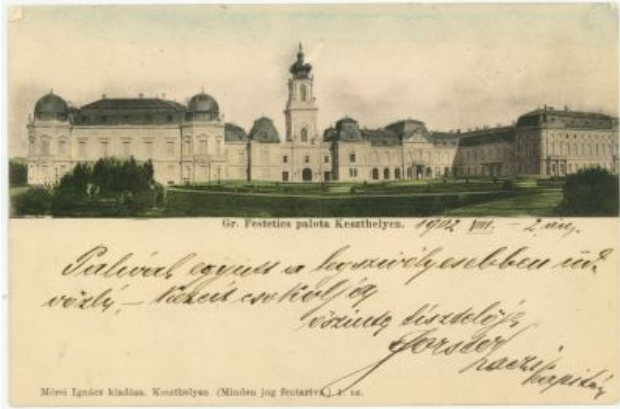 Gr. Festetics palota Keszthelyen. 1902 VIII. – 2 án,
Palival együtt a legszivélyesebben üd-
vözli, – kezeit csokolja
őszinte tisztelője
Forster
Laczi
kapitány
Mérei Ignácz kiadása. Keszthelyen. (Minden jog fentartva.) 1. sz.